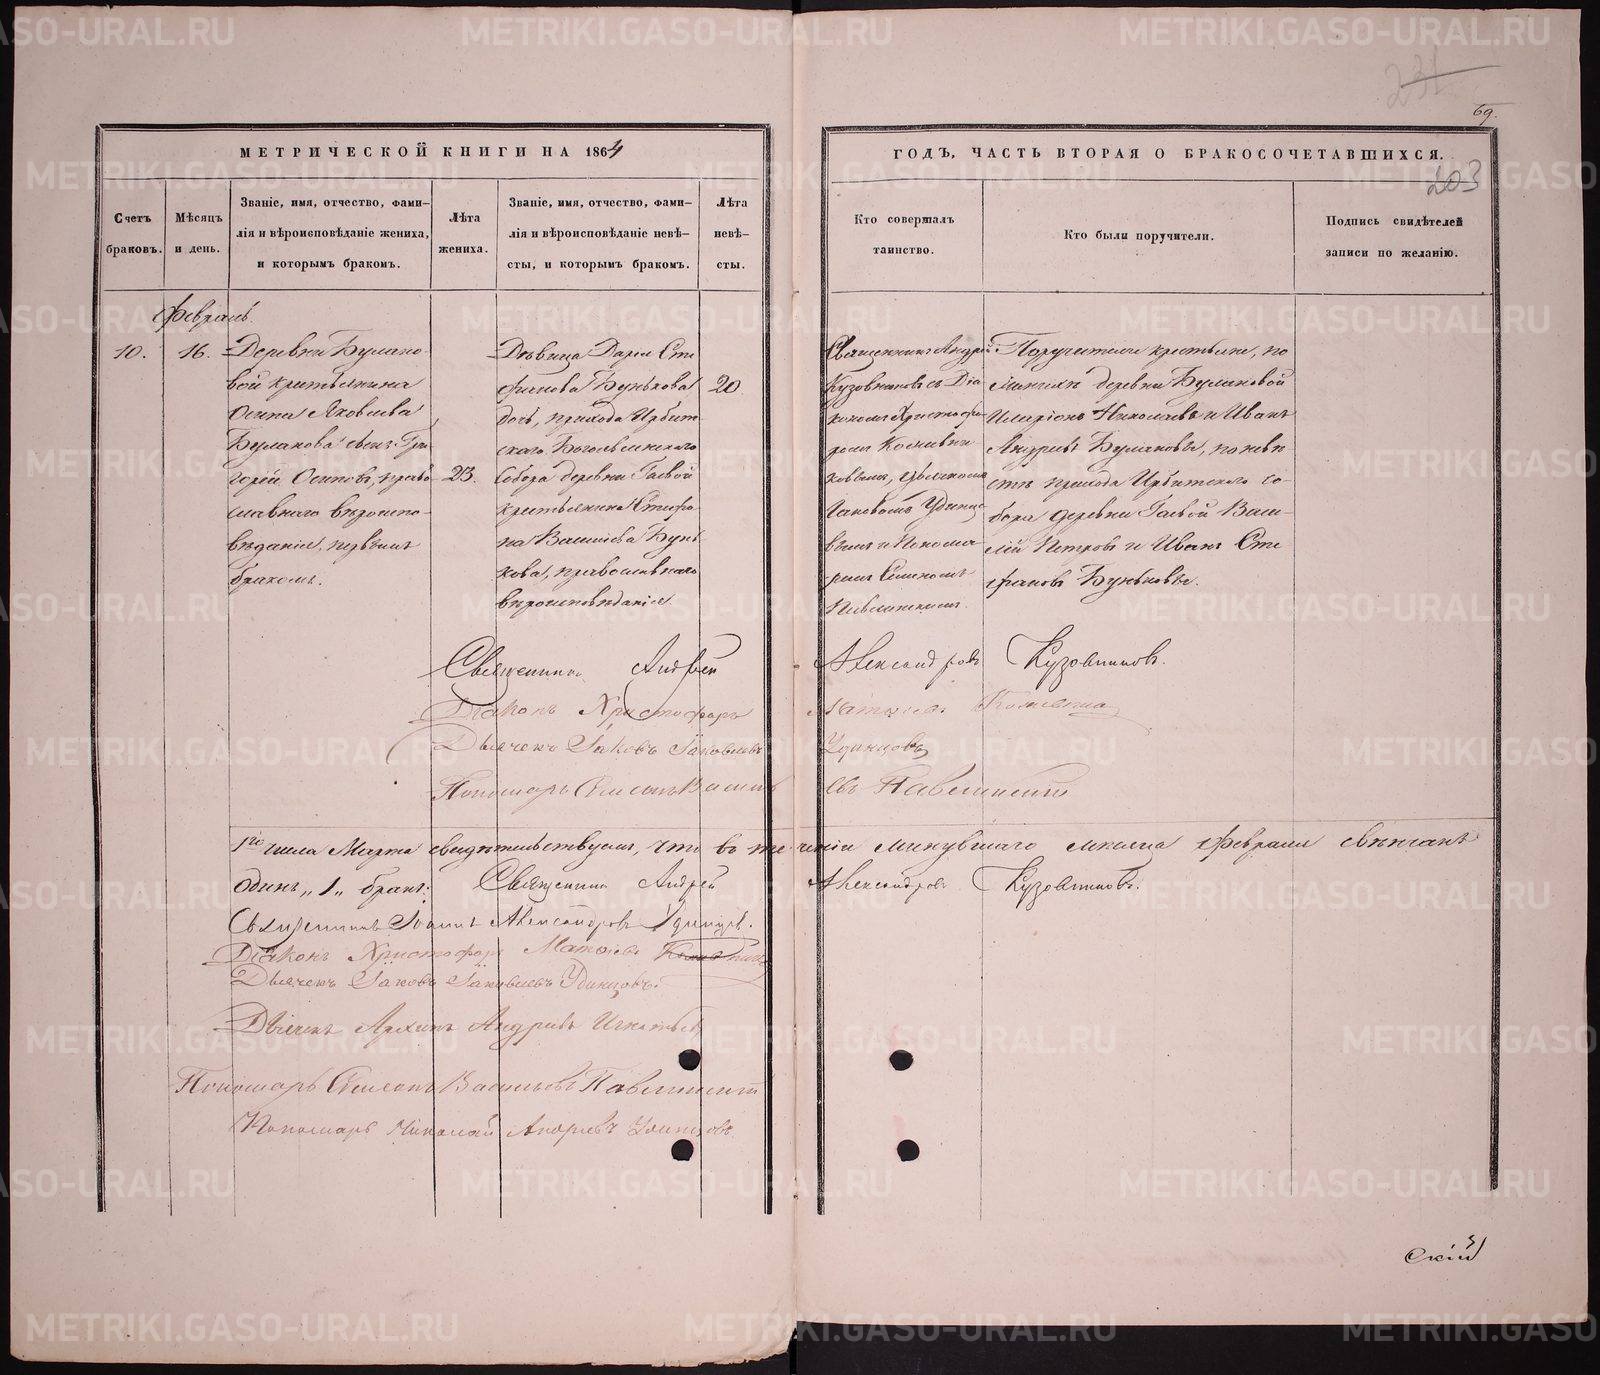 231
69.
МЕТРИЧЕСКОЙ КНИГИ НА 1864
ГОДЪ, ЧАСТЬ ВТОРАЯ О БРАКОСОЧЕТАВШИХСЯ.
203
Счетъ
браковъ.
Мѣсяцъ
и день.
Званіе, имя, отчество, фами-
лія и вѣроисповѣданіе жениха,
и которымъ бракомъ.
Лѣта
жениха.
Званіе, имя, отчество, фами-
лія и вѣроисповѣданіе невѣ-
сты, и которымъ бракомъ.
Лѣта
невѣ-
сты.
Кто совершалъ
таинство.
Кто были поручители.
Подпись свидѣтелей
записи по желанію.
Февраль
10.
16.
Деревни Булано-
вой крестьянина
Осипа Яковлева
Буланова сынъ Гри-
горій Осиповъ, право-
славнаго вѣроиспо-
вѣданія, первымъ
бракомъ.
23.
Дѣвица Дарья Сте-
фанова Бунькова
дочь, прихода Ирбит-
скаго Богоявленскаго
Собора деревни Гаевой
крестьянина Стефа-
на Васильева Бунь-
кова, православнаго
вѣроисповѣданія
20
Священникъ Андрей
Кузовниковъ съ Діа-
кономъ Христофо-
ромъ
Іаковомъ Удинцо-
вымъ и Понома-
ремъ Симеономъ
Поручители крестьяне, по
женихѣ деревни Булановой
Иларіонъ Николаевъ и Иванъ
Андреевъ Булановы, по невѣ-
стѣ прихода Ирбитскаго со-
бора деревни Гаевой Васи-
лій Петровъ и Иванъ Сте-
фановъ Буньковы.
Священникъ Андрей Александровъ Кузовниковъ.
Діаконъ Христофоръ Матѳіевъ
Дьячекъ Іаковъ Іаковлевъ Удинцовъ
Пономарь Симеонъ Васильевъ
1го числа Марта свидѣтельствуемъ, что въ теченіи минувшаго мѣсяца Февраля вѣнчанъ
одинъ „1„ бракъ: Священникъ Андрей Александровъ Кузовниковъ.
Священникъ Іоаннъ Александровъ Удинцевъ.
Діаконъ Христофоръ Матѳіевъ
Дьячекъ Іаковъ Іаковлевъ Удинцовъ.
Дьячекъ Андреевъ Игнатьевъ
Пономарь Симеонъ Васильевъ
Пономарь Николай Андреевъ Удинцовъ
скій